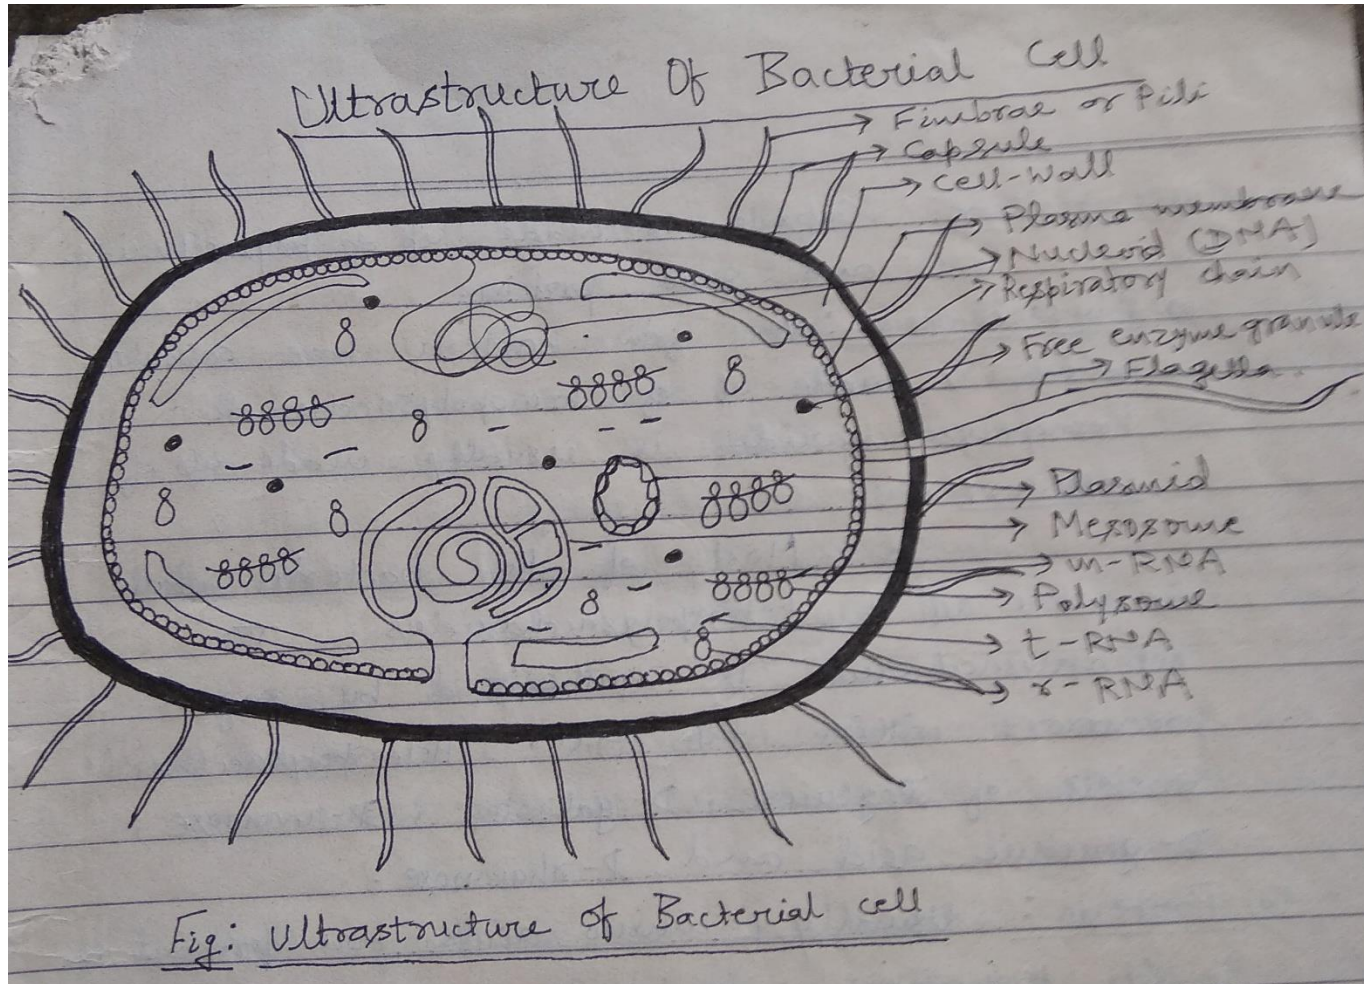 Ultrastructure Of Bacterial Cell
Fimbrae or Pili
Capsule
Cell-Wall
Plasma membrane
Nucleoid (DNA)
Respiratory chain
Free enzyme granule
Flagella
Plasmid
Mesosome
m-RNA
Polysome
t-RNA
r-RNA
Fig: Ultrastructure of Bacterial cell